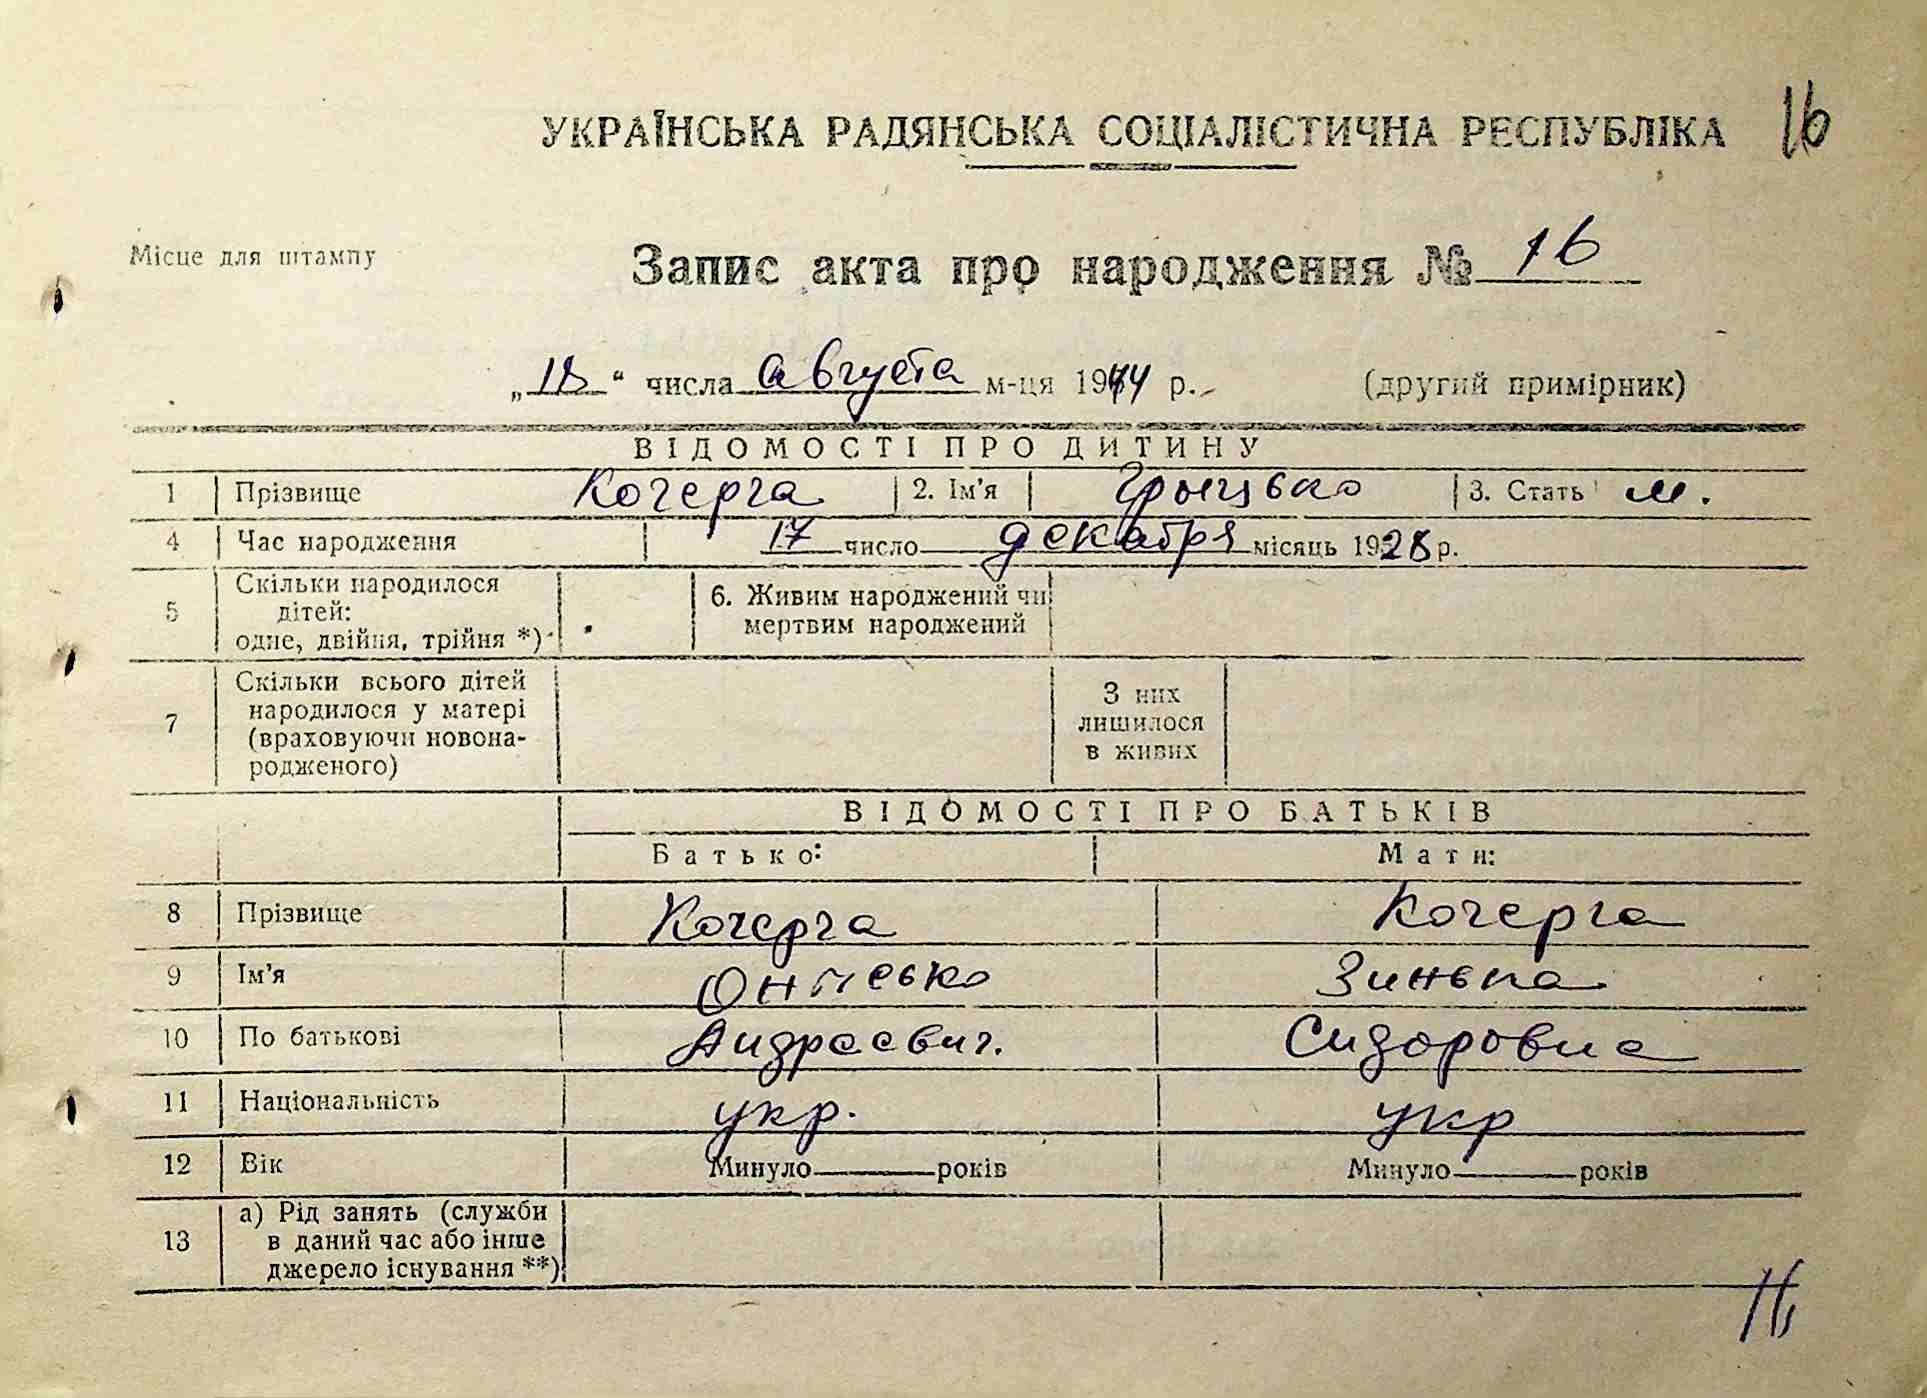 УКРАЇНСЬКА РАДЯНСЬКА СОЦІАЛІСТИЧНА РЕСПУБЛІКА 16
Місце для штампу
Запис акта про народження № 16
„18“ числа августа м-ця 1944 р. (другий примірник)
ВІДОМОСТІ ПРО ДИТИНУ
1 Прізвище Кочерга 2. Ім'я Грыцько 3. Стать м.
4 Час народження 17 число декабря місяць 1928 р.
5 Скільки народилося дітей: одне, двійня, трійня *) 6. Живим народжений чи мертвим народжений
7 Скільки всього дітей народилося у матері (враховуючи новона-родженого) З них лишилося в живих
ВІДОМОСТІ ПРО БАТЬКІВ
Батько: Мати:
8 Прізвище Кочерга Кочерга
9 Ім'я Онисько Зинька
10 По батькові Андреевич. Сидоровна
11 Національність укр. укр
12 Вік Минуло років Минуло років
13 а) Рід занять (служби в даний час або інше джерело існування **)